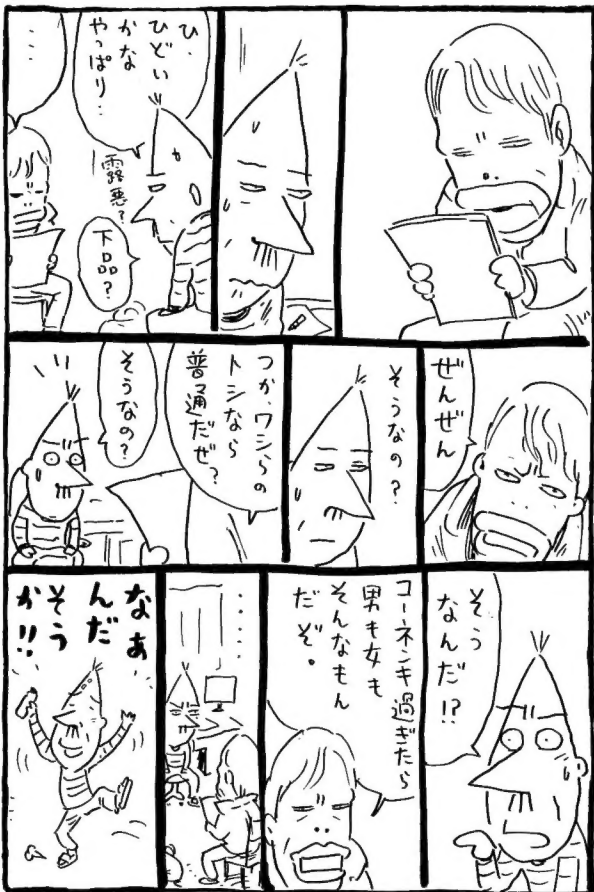 ひ‥
ひどい
かな
やっぱり‥
露悪？
下品？
‥‥
ぜんぜん
そうなの？
つか、ワシらの
トシなら
普通だぜ？
そうなの？
そう
なんだ!?
コーネンキ過ぎたら
男も女も
そんなもん
だぞ。
‥‥‥
なあ
んだ
そう
か!!